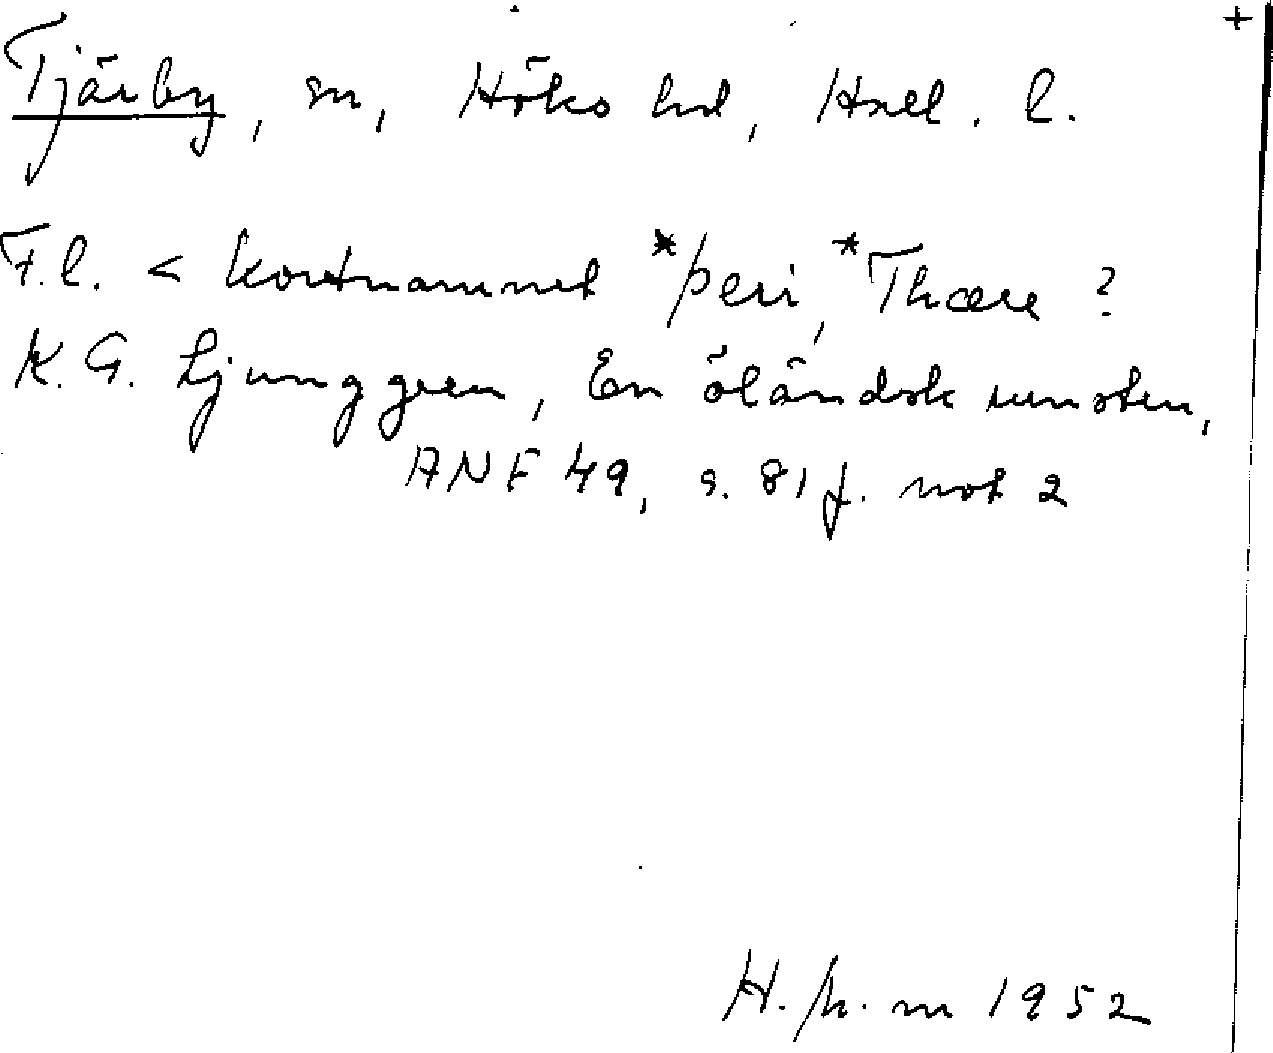 +
Tjärby, sn, Höks hd, Hall. l.
F.l. < kortnamnet *þeri, *Thære ?
K. G. Ljunggren, En öländsk runsten,
ANF 49, s. 81 f. not 2
H. 1952